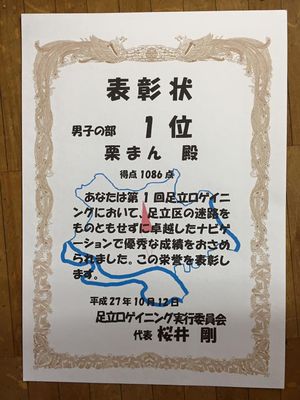 表彰状
男子の部 1位
栗まん 殿
得点1086点
あなたは第1回足立ロゲイニ
ングにおいて、足立区の迷路を
ものともせずに卓越したナビゲ
ーションで優秀な成績をおさめ
られました。この栄誉を表彰し
ます。
平成27年10月12日
足立ロゲイニング実行委員会
代表 桜井 剛